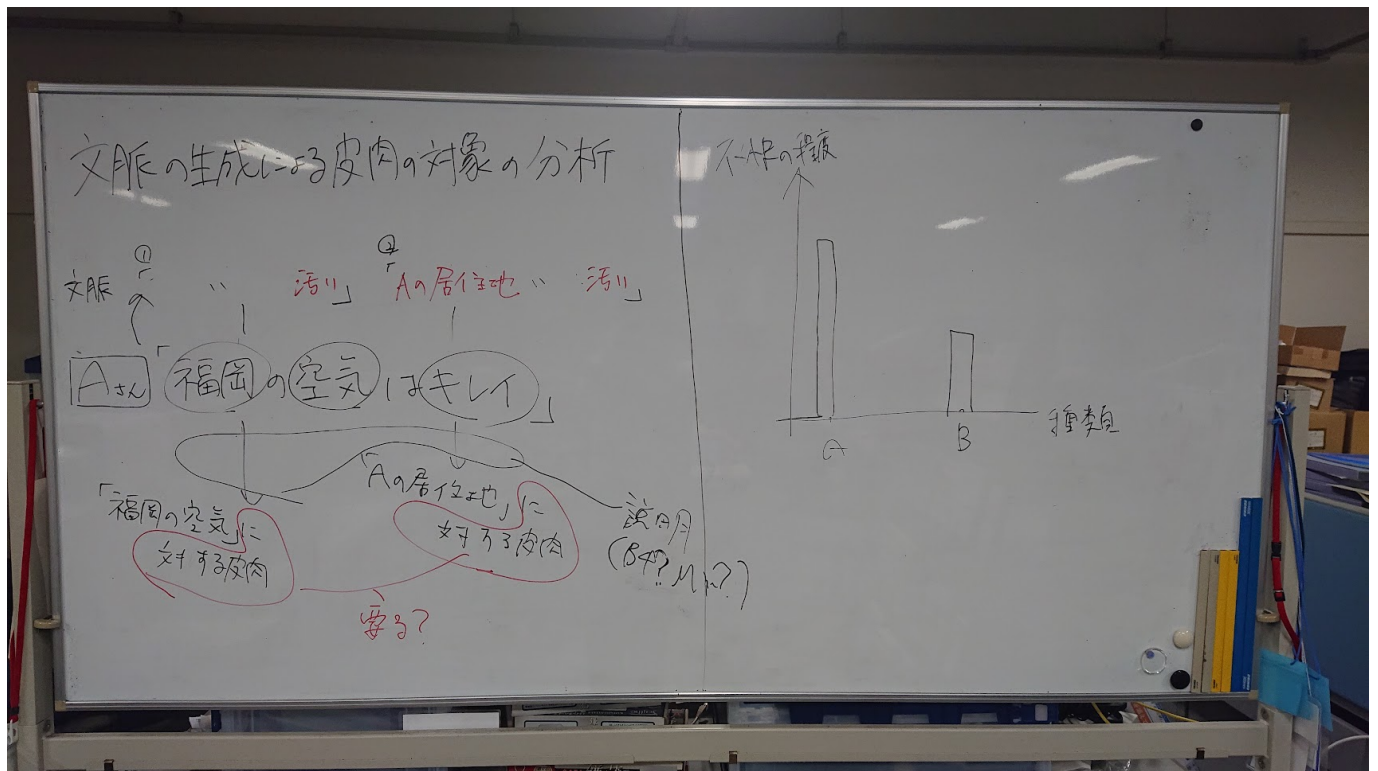 文脈の生成による皮肉の対象の分析
① ②
文脈「 〃 汚い」「Aの居住地 〃 汚い」
Aさん「福岡の空気はキレイ」
「福岡の空気」に
対する皮肉
「Aの居住地」に
対する皮肉
要る?
説明
の程度
A
B
種類